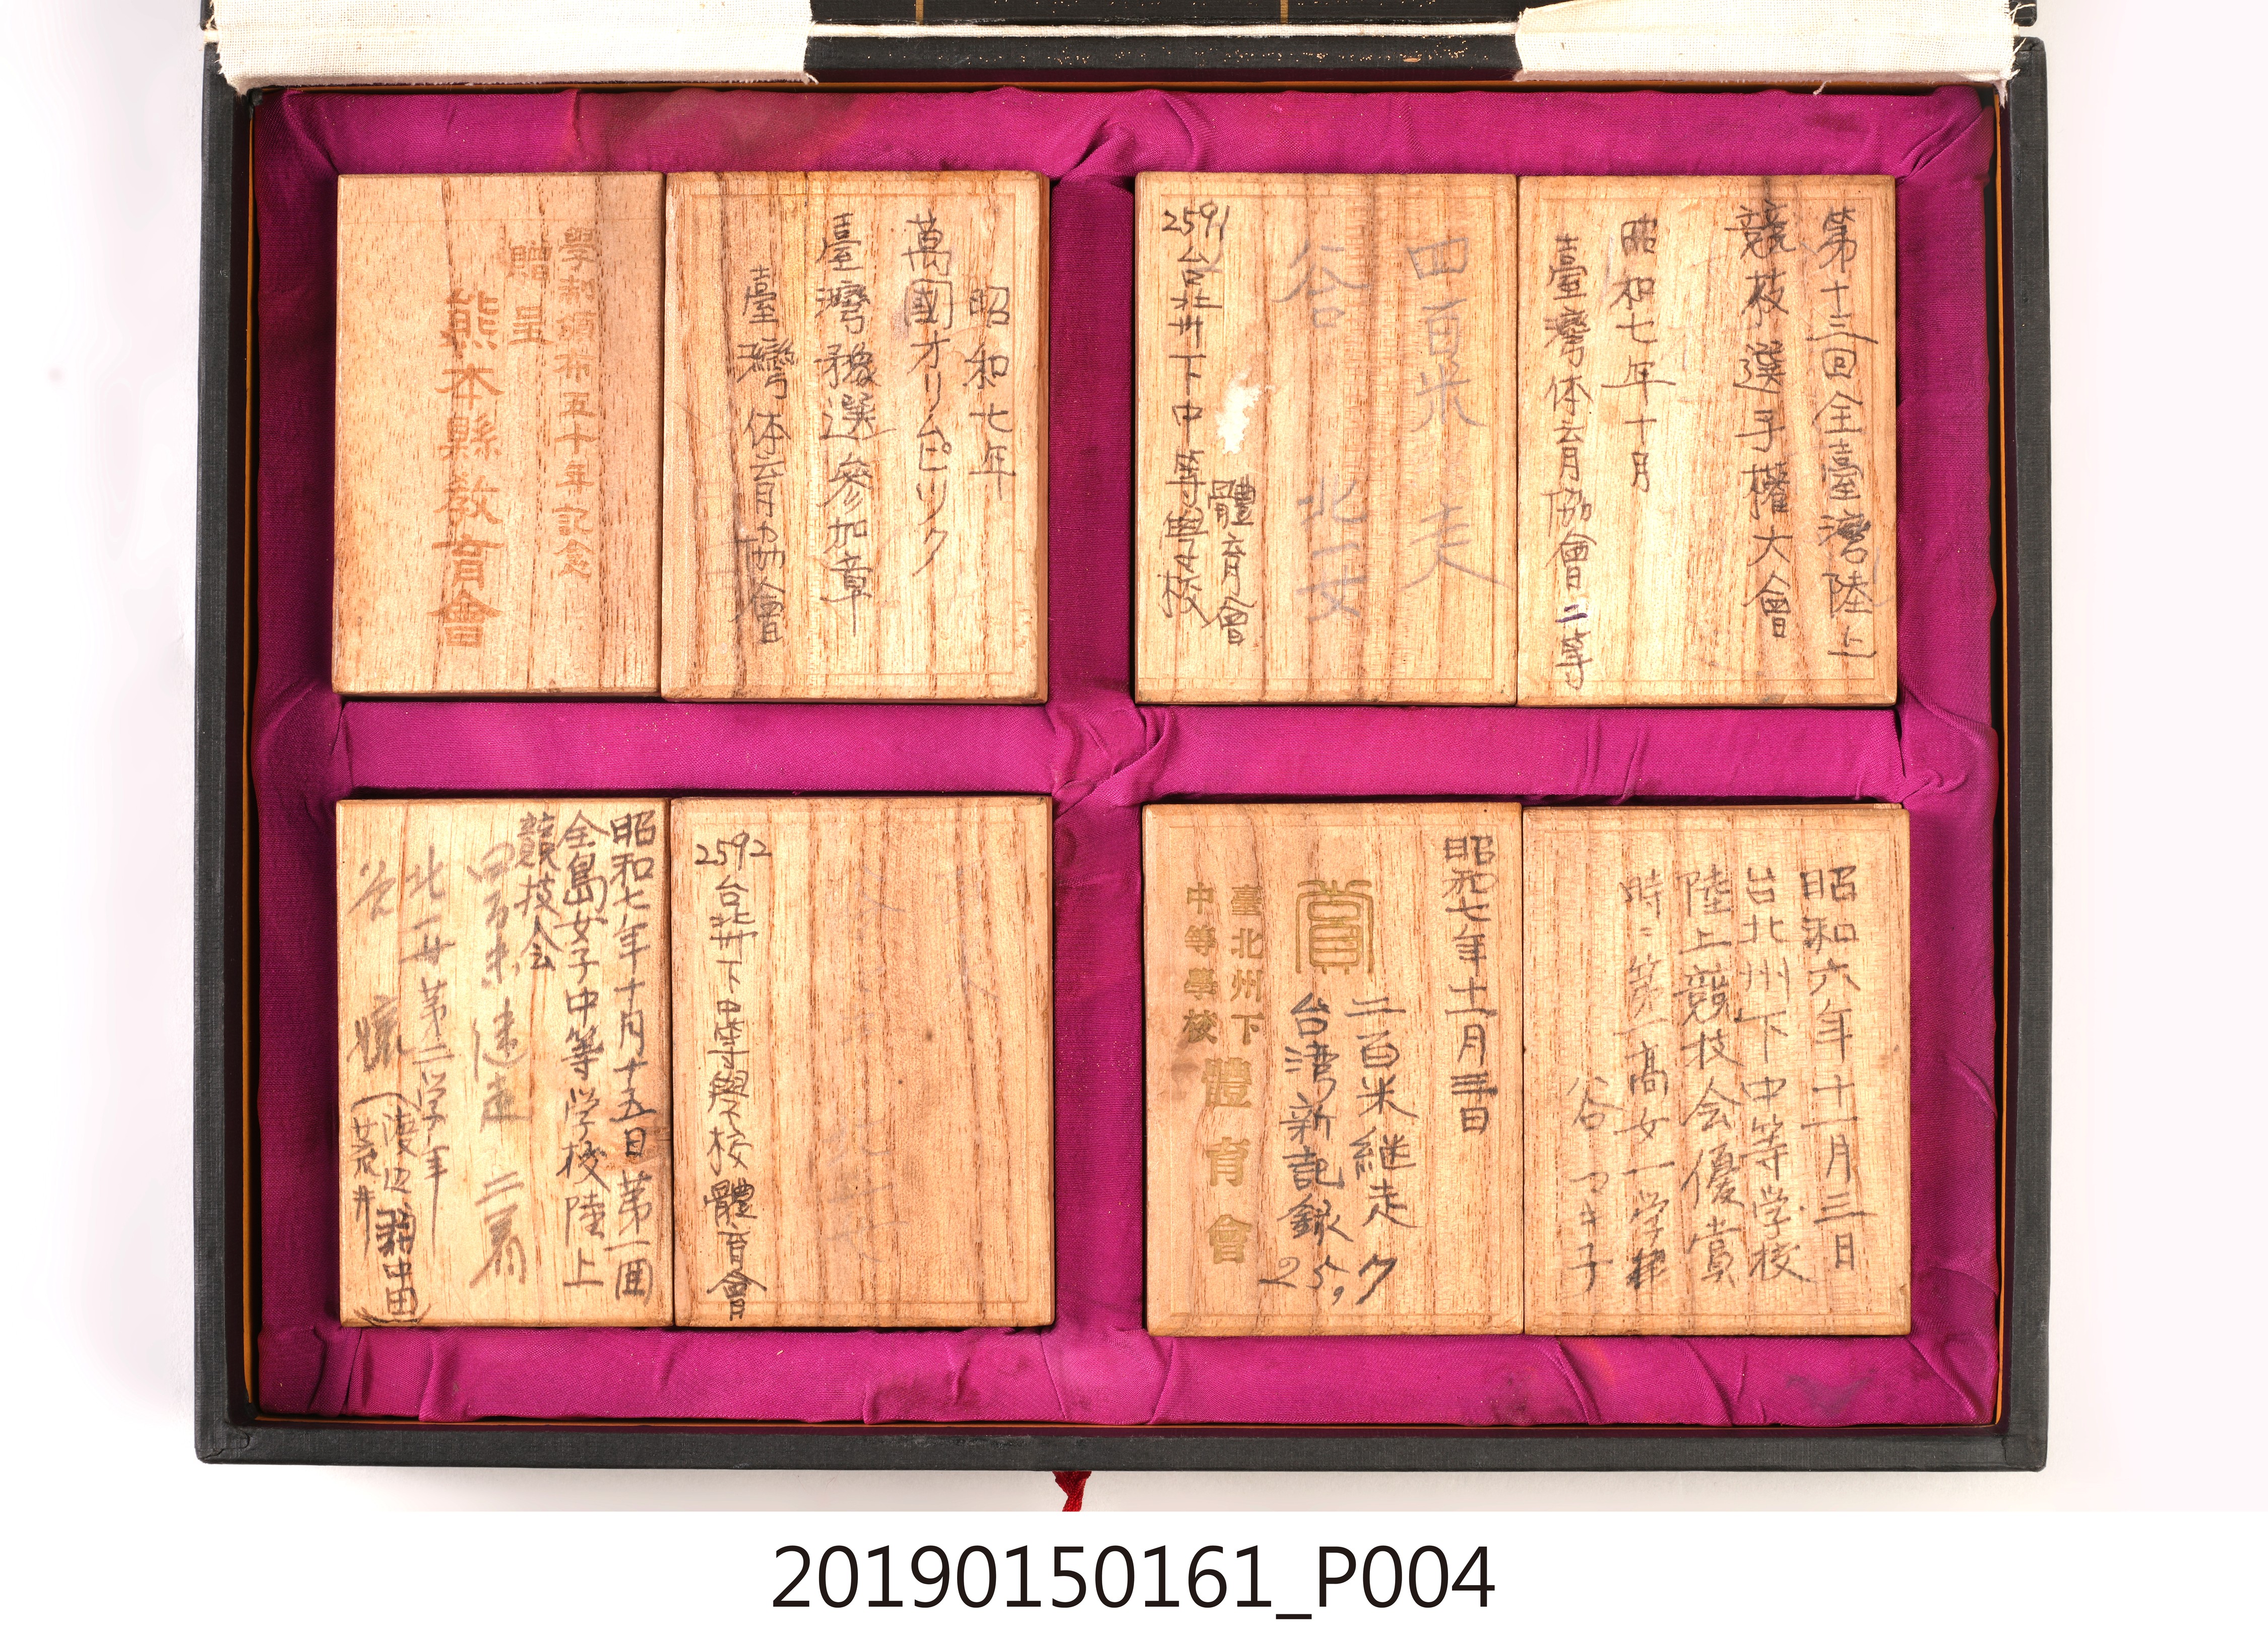 第十三回全臺灣陸上
競技選手權大會
昭和七年十月
臺灣体育協會二等
四百米 走
谷 北一女
體育會
2591台北州下中等學校
昭和七年
萬國オリムピック
臺灣豫選參加章
臺灣体育協會
學制頒布五十年記念
贈呈
熊本縣敎育會
昭和六年十一月三日
台北州下中等学校
陸上競技会優賞
時ニ第一高女一学年
谷 マキ子
昭和七年十一月三日
賞
二百米継走ク
台湾新記録
臺北州下
中等學校
體育會
2592台北州下中等學校體育會
昭和七年十月十五日第一回
全島女子中等学校陸上
競技会
四百米継走 二着
北一女第二学年
谷
渡辺
田中
荒井
20190150161_P004